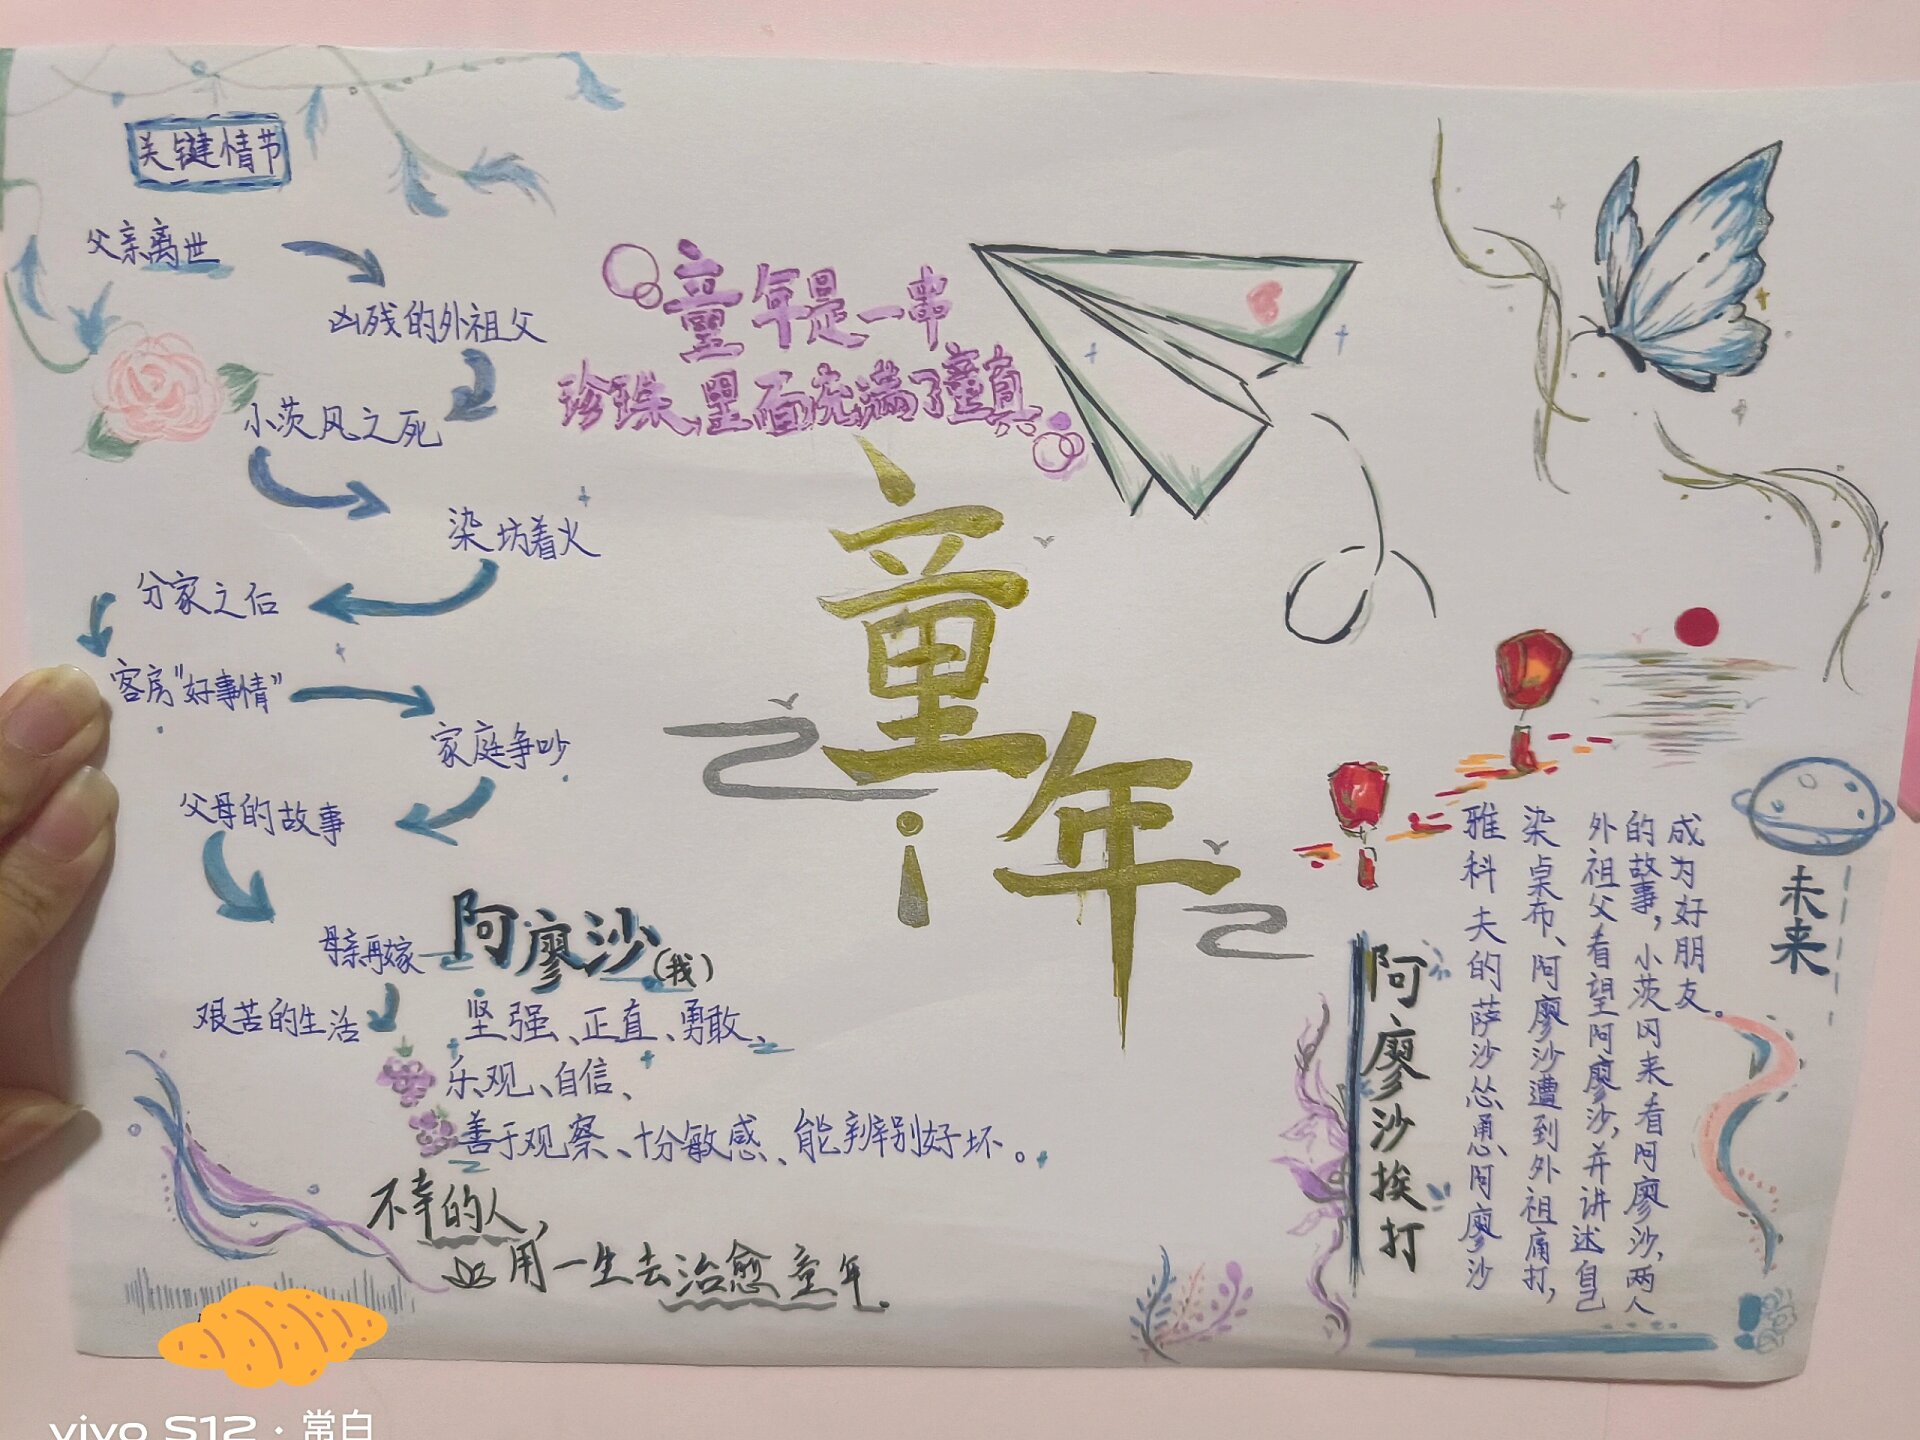 关键情节
父亲离世
凶残的外祖父
小茨风之死
染坊着火
分家之后
客房"好事情"
家庭争吵
父母的故事
母亲再嫁
艰苦的生活
童年是一串
珍珠、里面充满了童真
童年
阿廖沙(我)
坚强、正直、勇敢、
乐观、自信、
善于观察、十分敏感、能辨别好坏。
不幸的人,
用一生去治愈童年.
未来
阿廖沙挨打
雅科夫的萨沙怂恿阿廖沙
染桌布、阿廖沙遭到外祖痛打,
外祖父看望阿廖沙,并讲述自己
的故事,小茨冈来看阿廖沙,两人
成为好朋友。
vivo S12·常白